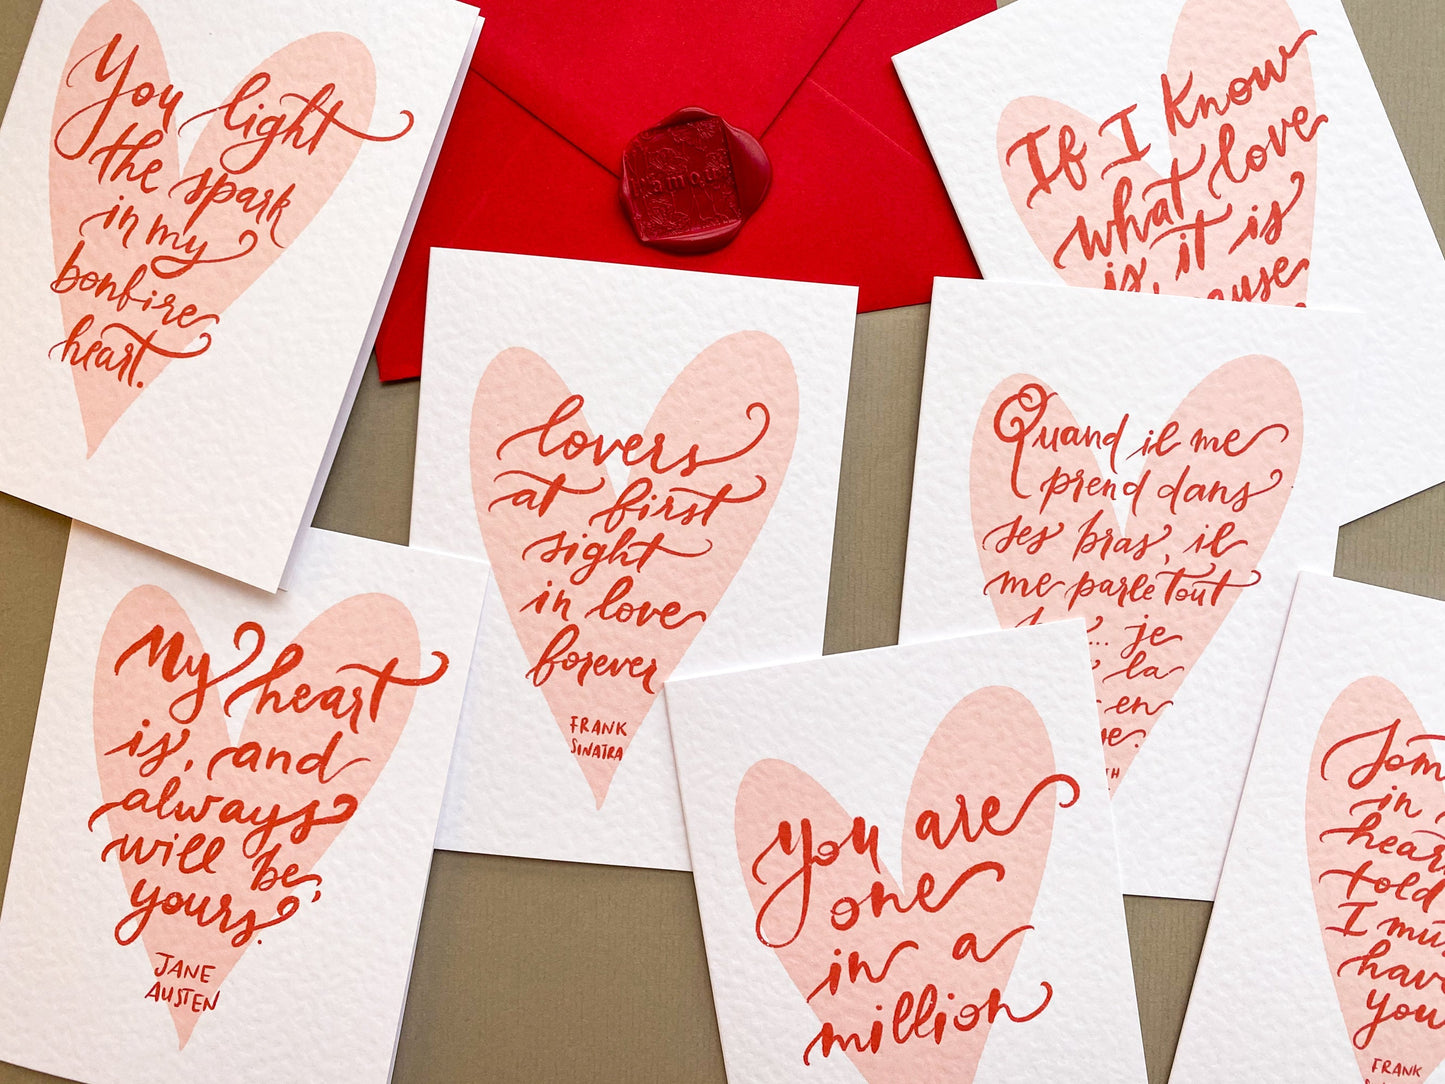 You light
the spark
in my
bonfire
heart.
amour
If I know
what love
is, it is
lovers
at first
sight
in love
forever
FRANK
SINATRA
Quand il me
prend dans
ses bras, il
me parle tout
je
la
en
My heart
is, and
always
will be,
yours.
JANE
AUSTEN
You are
one
in a
million
in
told
I
have
you
FRANK